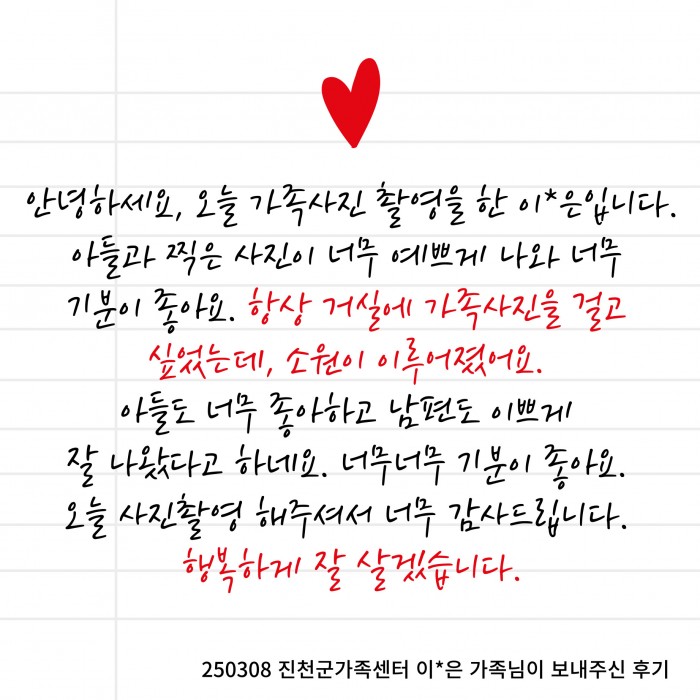 안녕하세요, 오늘 가족사진 촬영을 한 이*은입니다.
아들과 찍은 사진이 너무 예쁘게 나와 너무
기분이 좋아요. 항상 거실에 가족사진을 걸고
싶었는데, 소원이 이루어졌어요.
아들도 너무 좋아하고 남편도 이쁘게
잘 나왔다고 하네요. 너무너무 기분이 좋아요.
오늘 사진촬영 해주셔서 너무 감사드립니다.
행복하게 잘 살겠습니다.
250308 진천군가족센터 이*은 가족님이 보내주신 후기